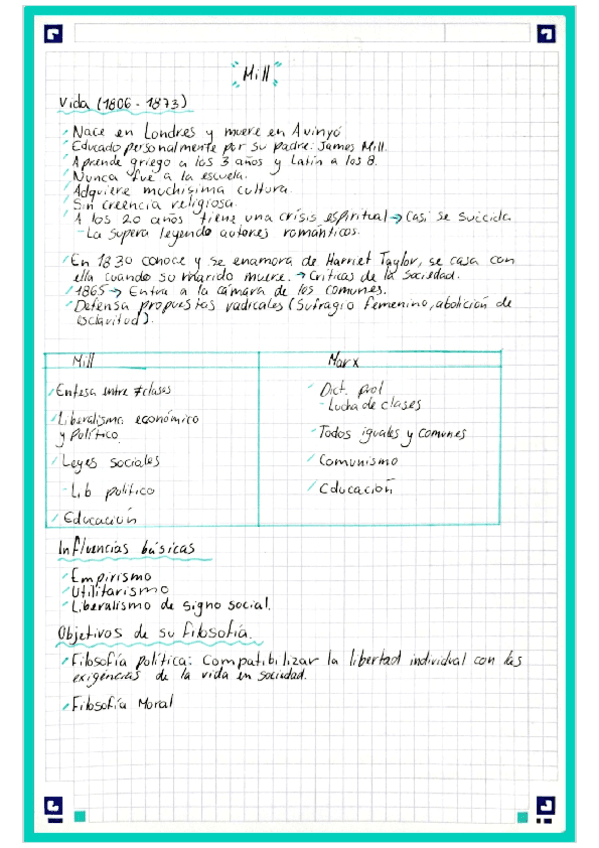 Mill
Vida (1806 - 1873)
Nace en Londres y muere en Avinyó
Educado personalmente por su padre: James Mill.
Aprende griego a los 3 años y Latín a los 8.
Nunca fué a la escuela.
Adquiere muchísima cultura.
Sin creencia religiosa.
A los 20 años tiene una crisis espiritual → Casi se suicida
- La supera leyendo autores románticos.
En 1830 conoce y se enamora de Harriet Taylor, se casa con
ella cuando su marido muere. → Críticas de la Sociedad.
1865 → Entra a la cámara de los comunes.
Defensa propuestas radicales (Sufragio femenino, abolición de
esclavitud).
Mill Marx
Entesa entre ≠ clases Dict. prol
- Lucha de clases
Liberalismo económico
y Político. Todos iguales y comunes
Leyes sociales Comunismo
- Lib político Educación
Educación
Influencias básicas
Empirismo
Utilitarismo
Liberalismo de signo social.
Objetivos de su filosofía.
Filosofía política: Compatibilizar la libertad individual con las
exigencias de la vida en sociedad.
Filosofía Moral